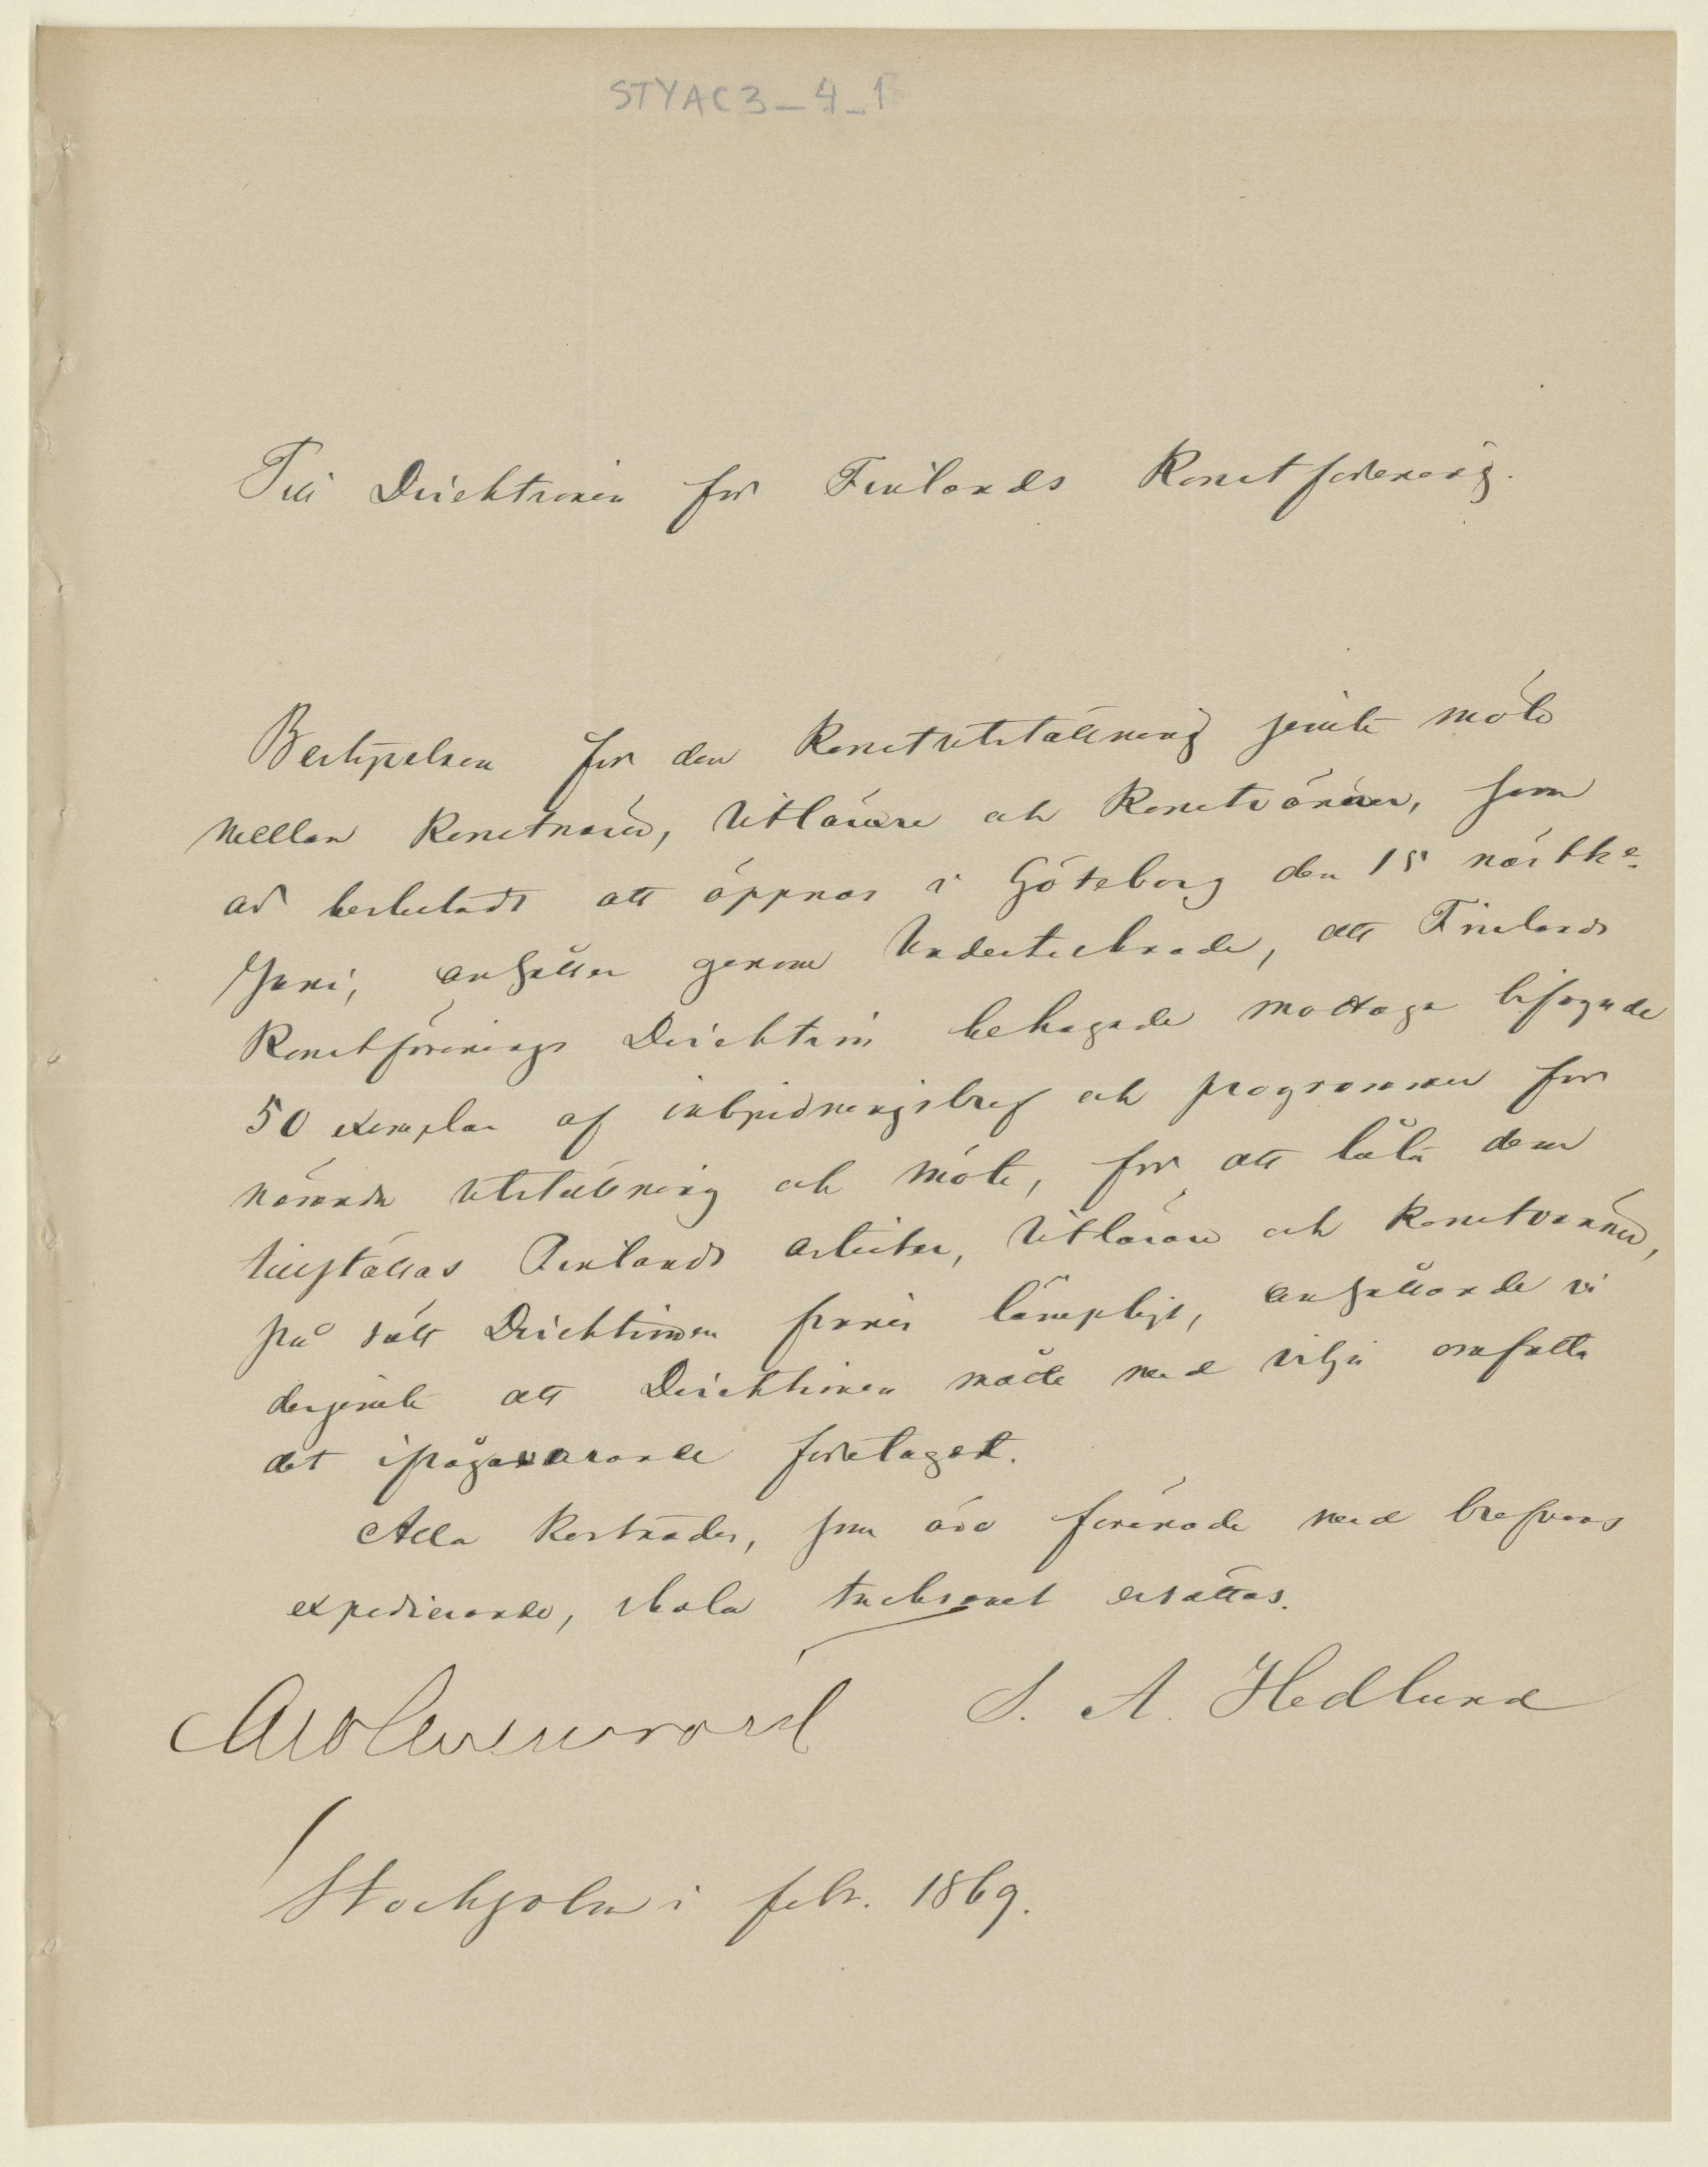 STYAC3_4_1
Till Direktionen för Finlands Konstförening.
Bestyrelsen för den Konstutställning jemte möte
mellan Konstnärer, Vitlärare och Konstvänner, som
är beslutadt att öppnas i Göteborg den 15 nästk.
Juni, anhåller genom Undertecknade, att Finlands
Konstförenings Direktion behagade mottaga bifogade
50 exemplar af inbjudningsbref och programmer för
nämnda utställning och möte, för att låta dem
tillställas Finlands artister, Vitlärare och konstvänner,
på sätt Direktionen finner lämpligt, anhållande vi
derjemte att Direktionen måtte med vilja omfatta
det ifrågavarande företaget.
Alla kostnader, som äro förenade med brefvens
expedierande, skola tacksamt ersättas.
S. A. Hedlund
Stockholm i febr. 1869.